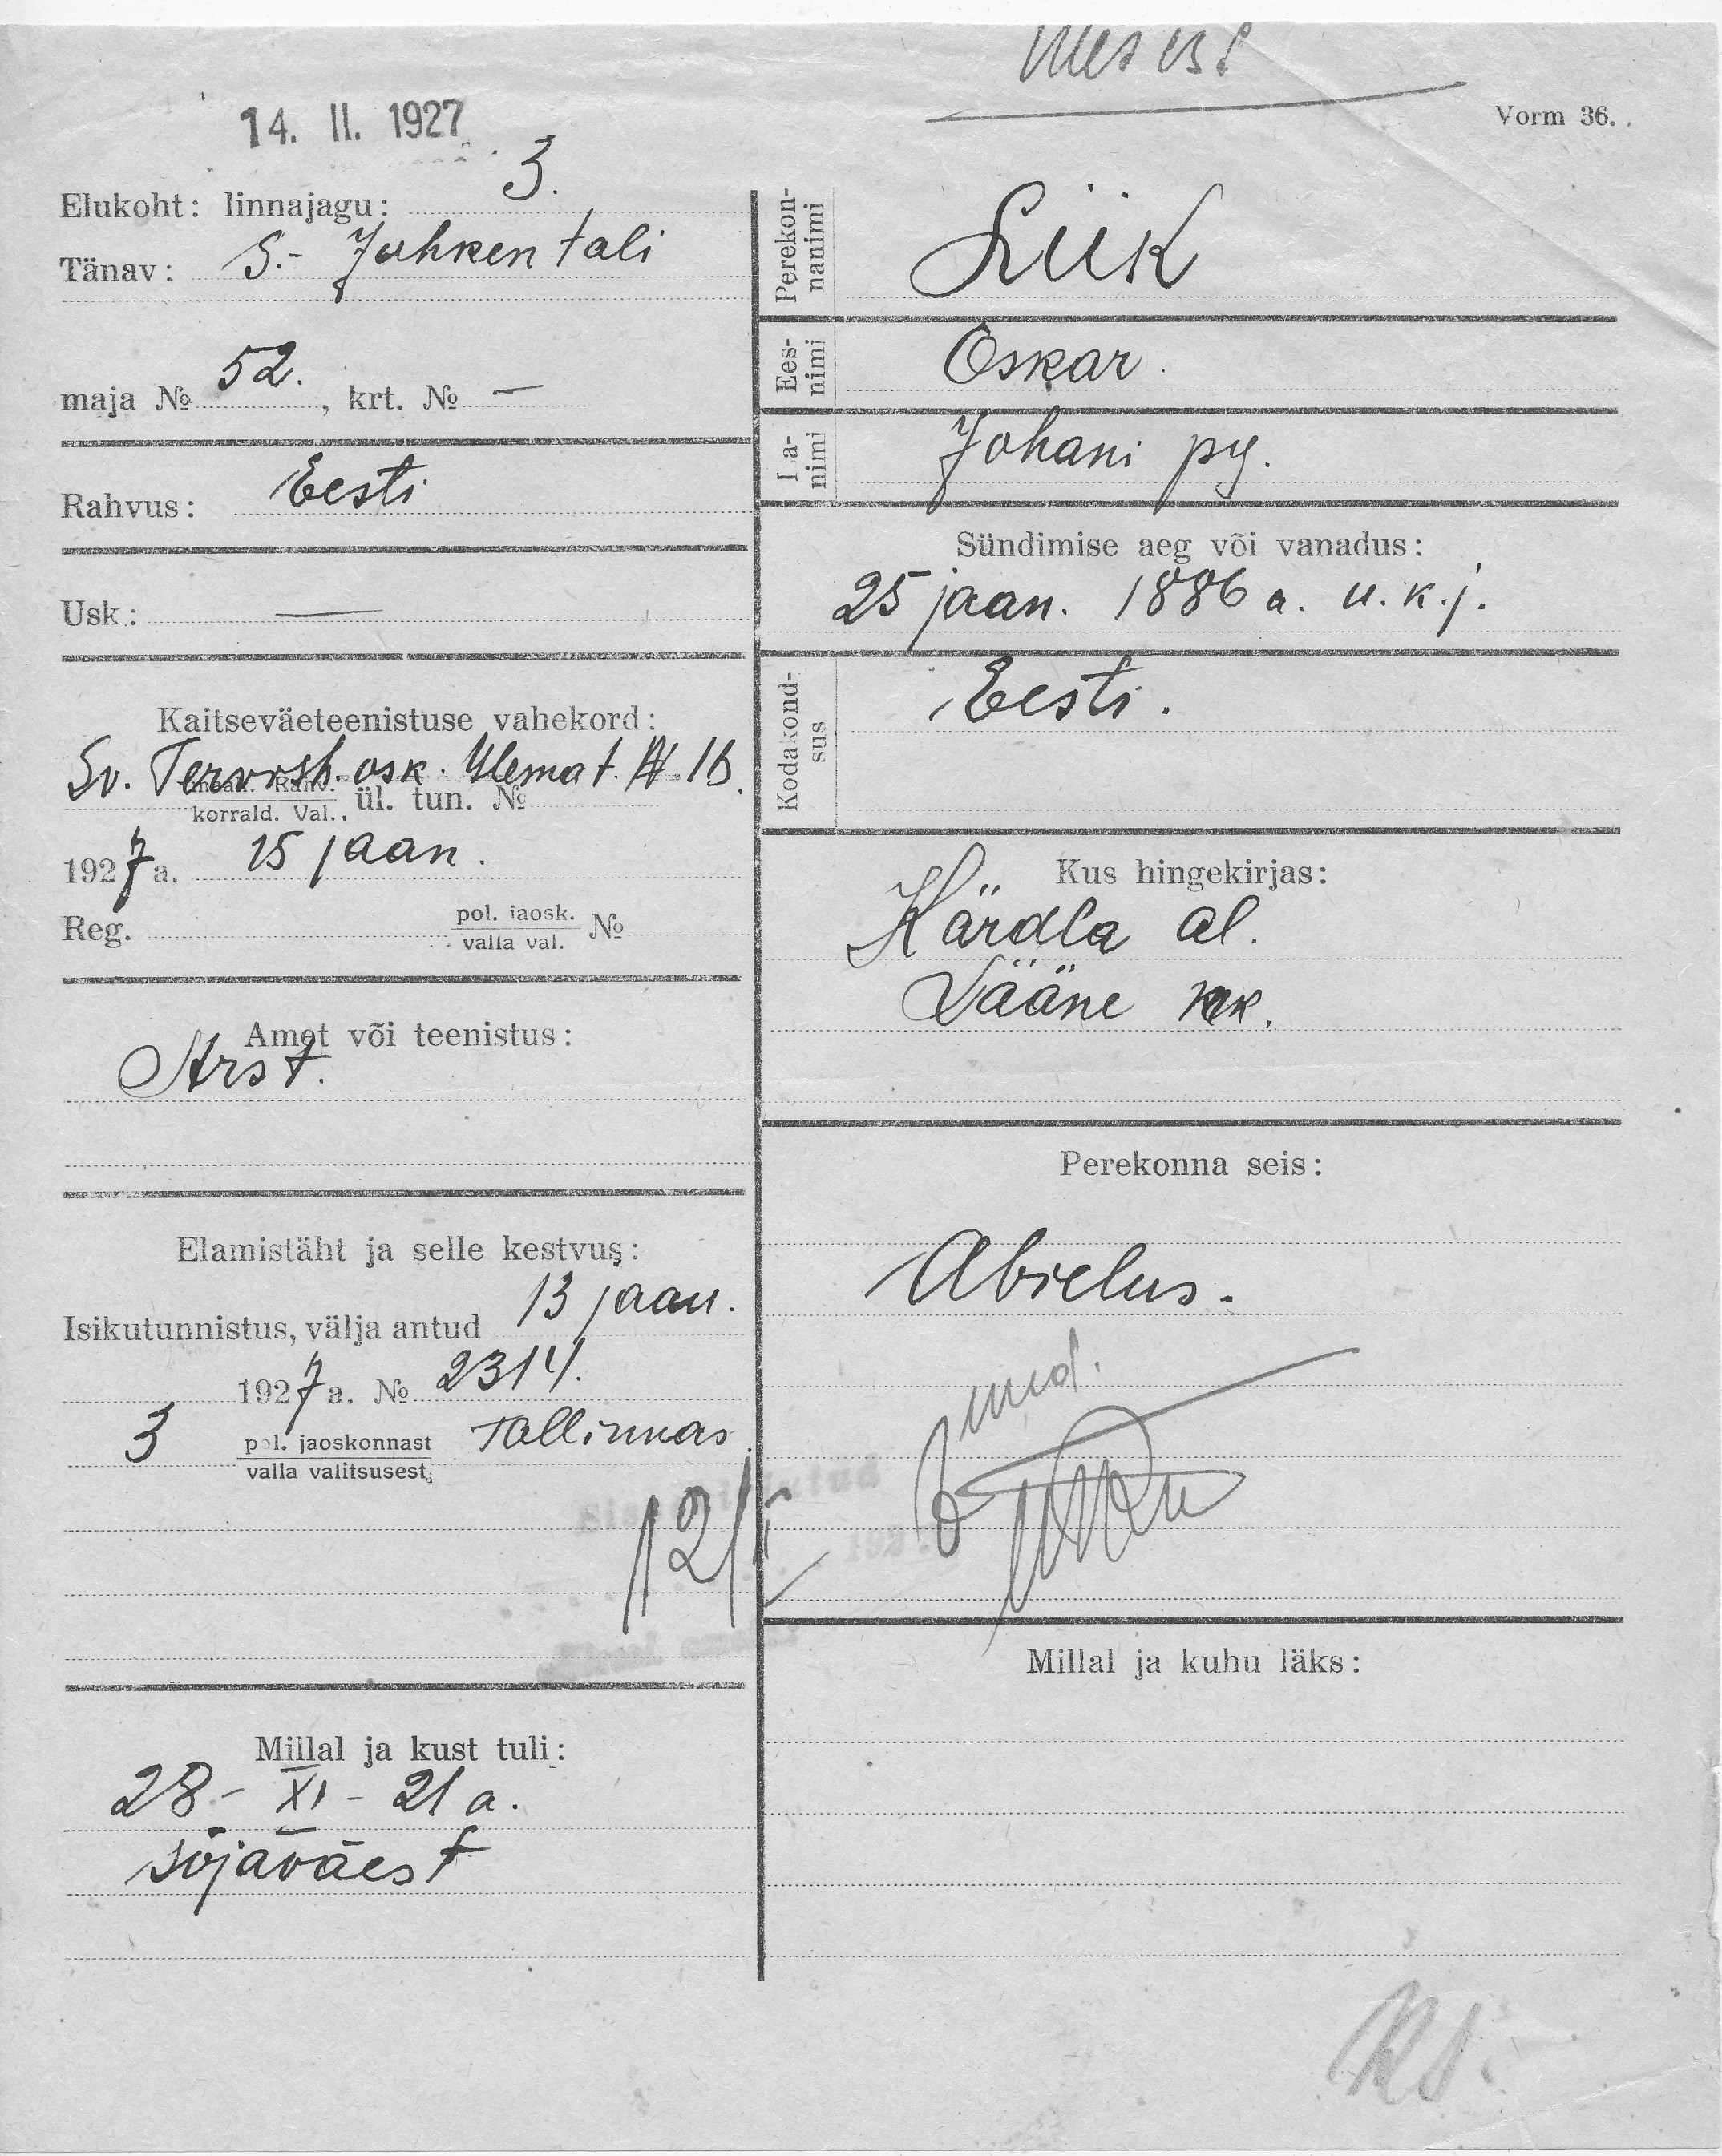 14. II. 1927
Vorm 36.
Elukoht: linnajagu: 3.
Tänav: S.- Juhkentali
maja № 52. , krt. № —
Rahvus: Eesti
Usk: —
Kaitseväeteenistuse vahekord:
Sv. Tervish. osk. Ülemat. № 16.
korrald. Val. ül. tun. №
1927 a. 15 jaan.
Reg. pol. jaosk. №
valla val.
Amet või teenistus:
Arst.
Elamistäht ja selle kestvus:
Isikutunnistus, välja antud 13 jaan.
1927 a. № 2314.
3 pol. jaoskonnast Tallinnas
valla valitsusest
Millal ja kust tuli:
28 - XI - 21 a.
sõjaväest
Perekon-
nanimi
Liik
Ees-
nimi
Oskar.
Isa-
nimi
Johani pg.
Sündimise aeg või vanadus:
25 jaan. 1886 a. u. k. j.
Kodakond-
sus
Eesti.
Kus hingekirjas:
Kärdla al.
Lääne mk.
Perekonna seis:
Abielus.
Millal ja kuhu läks: